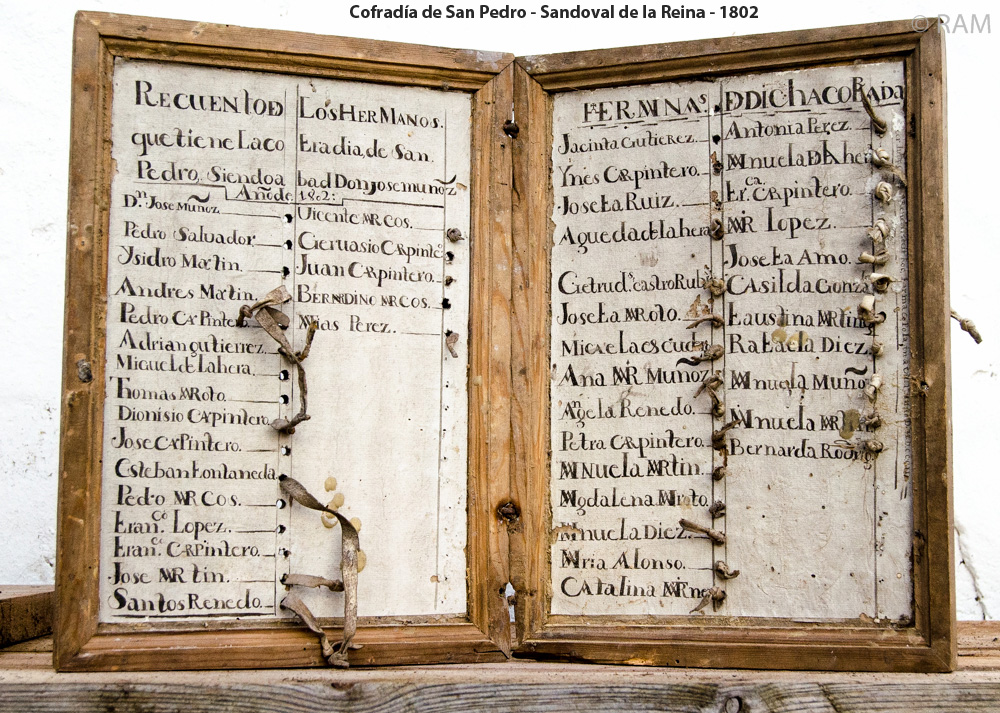 Cofradía de San Pedro - Sandoval de la Reina - 1802
© RAM
RECUENTO D LOS HERMANOS.
que tiene La co fradia, de San
Pedro, Siendo a bad Don Jose muñoz
Año de 1802:
Dn. Jose Muñoz.
Pedro Salvador.
Ysidro Martin.
Andres Martin.
Pedro CARPintero
Adrian gutierrez.
Miguel de la hera.
Thomas MRoto.
Dionisio CARpintero
Jose CARPintero.
Esteban fontaneda
Pedro MARCOS.
fran.co Lopez.
fran.co CARPintero.
Jose MARtin.
Santos Renedo.
Vicente MARCOS.
Geruasio CARpinte
Juan CARpintero.
BERNARDINO MARCOS.
MAias Perez.
HERMANAS. D DICHA COfRADA
Jacinta Gutierez.
Ynes CARpintero.
Josefa Ruiz.
Agueda de la hera
Getrud.s castro Rubi
Josefa MARoto.
Micaela escude
Ana MAR Muñoz
Angela Renedo.
Petra CARpintero.
MANuela MARtin.
MAgdalena MARoto.
MAnuela Diez.
MARia Alonso.
CATalina MARne
Antonia Perez.
MAnuela D LA hera
fr.ca CARpintero.
MAR Lopez.
Josefa Amo.
CAsilda Gonza
faustina MARtin
Rafaela Diez
MAnuela Muño
MAnuela MAR
Bernarda Rodri